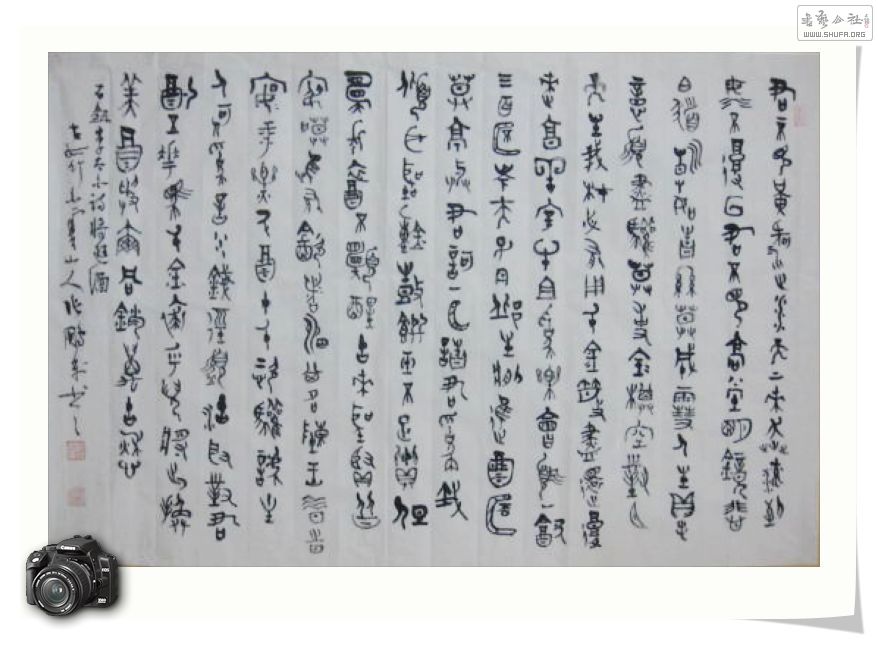 書藝公社
WWW.SHUFA.ORG
君不見黃河之水天上來奔流到
海不復回君不見高堂明鏡悲
白髮朝如青絲莫成雪人生得
意須盡歡莫使金樽空對月
天生我材必有用千金散盡還復
來羊宰牛且為樂會須一飲
三百杯岑夫子丹邱生將進酒杯
莫停君歌一曲請君為我
傾耳聽鐘鼓饌玉不足貴但
願長醉不願醒古來聖賢皆
寂寞惟有飲者留其名陳王昔時
宴平樂斗酒十千恣歡謔主
人何為言少錢徑須沽取對君
酌五花馬千金裘呼兒將出換
美酒與爾同銷萬古愁
右錄李太白詩將進酒
山人書
Canon
EOS